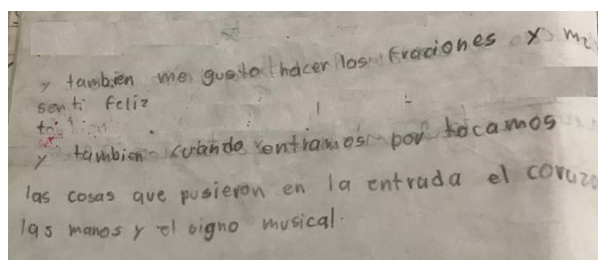 y tambien me gusto hacer los fraciones y me
senti feliz
y tambien cuando entramos por tocamos
las cosas que pusieron en la entrada el corazo
las manos y el signo musical.